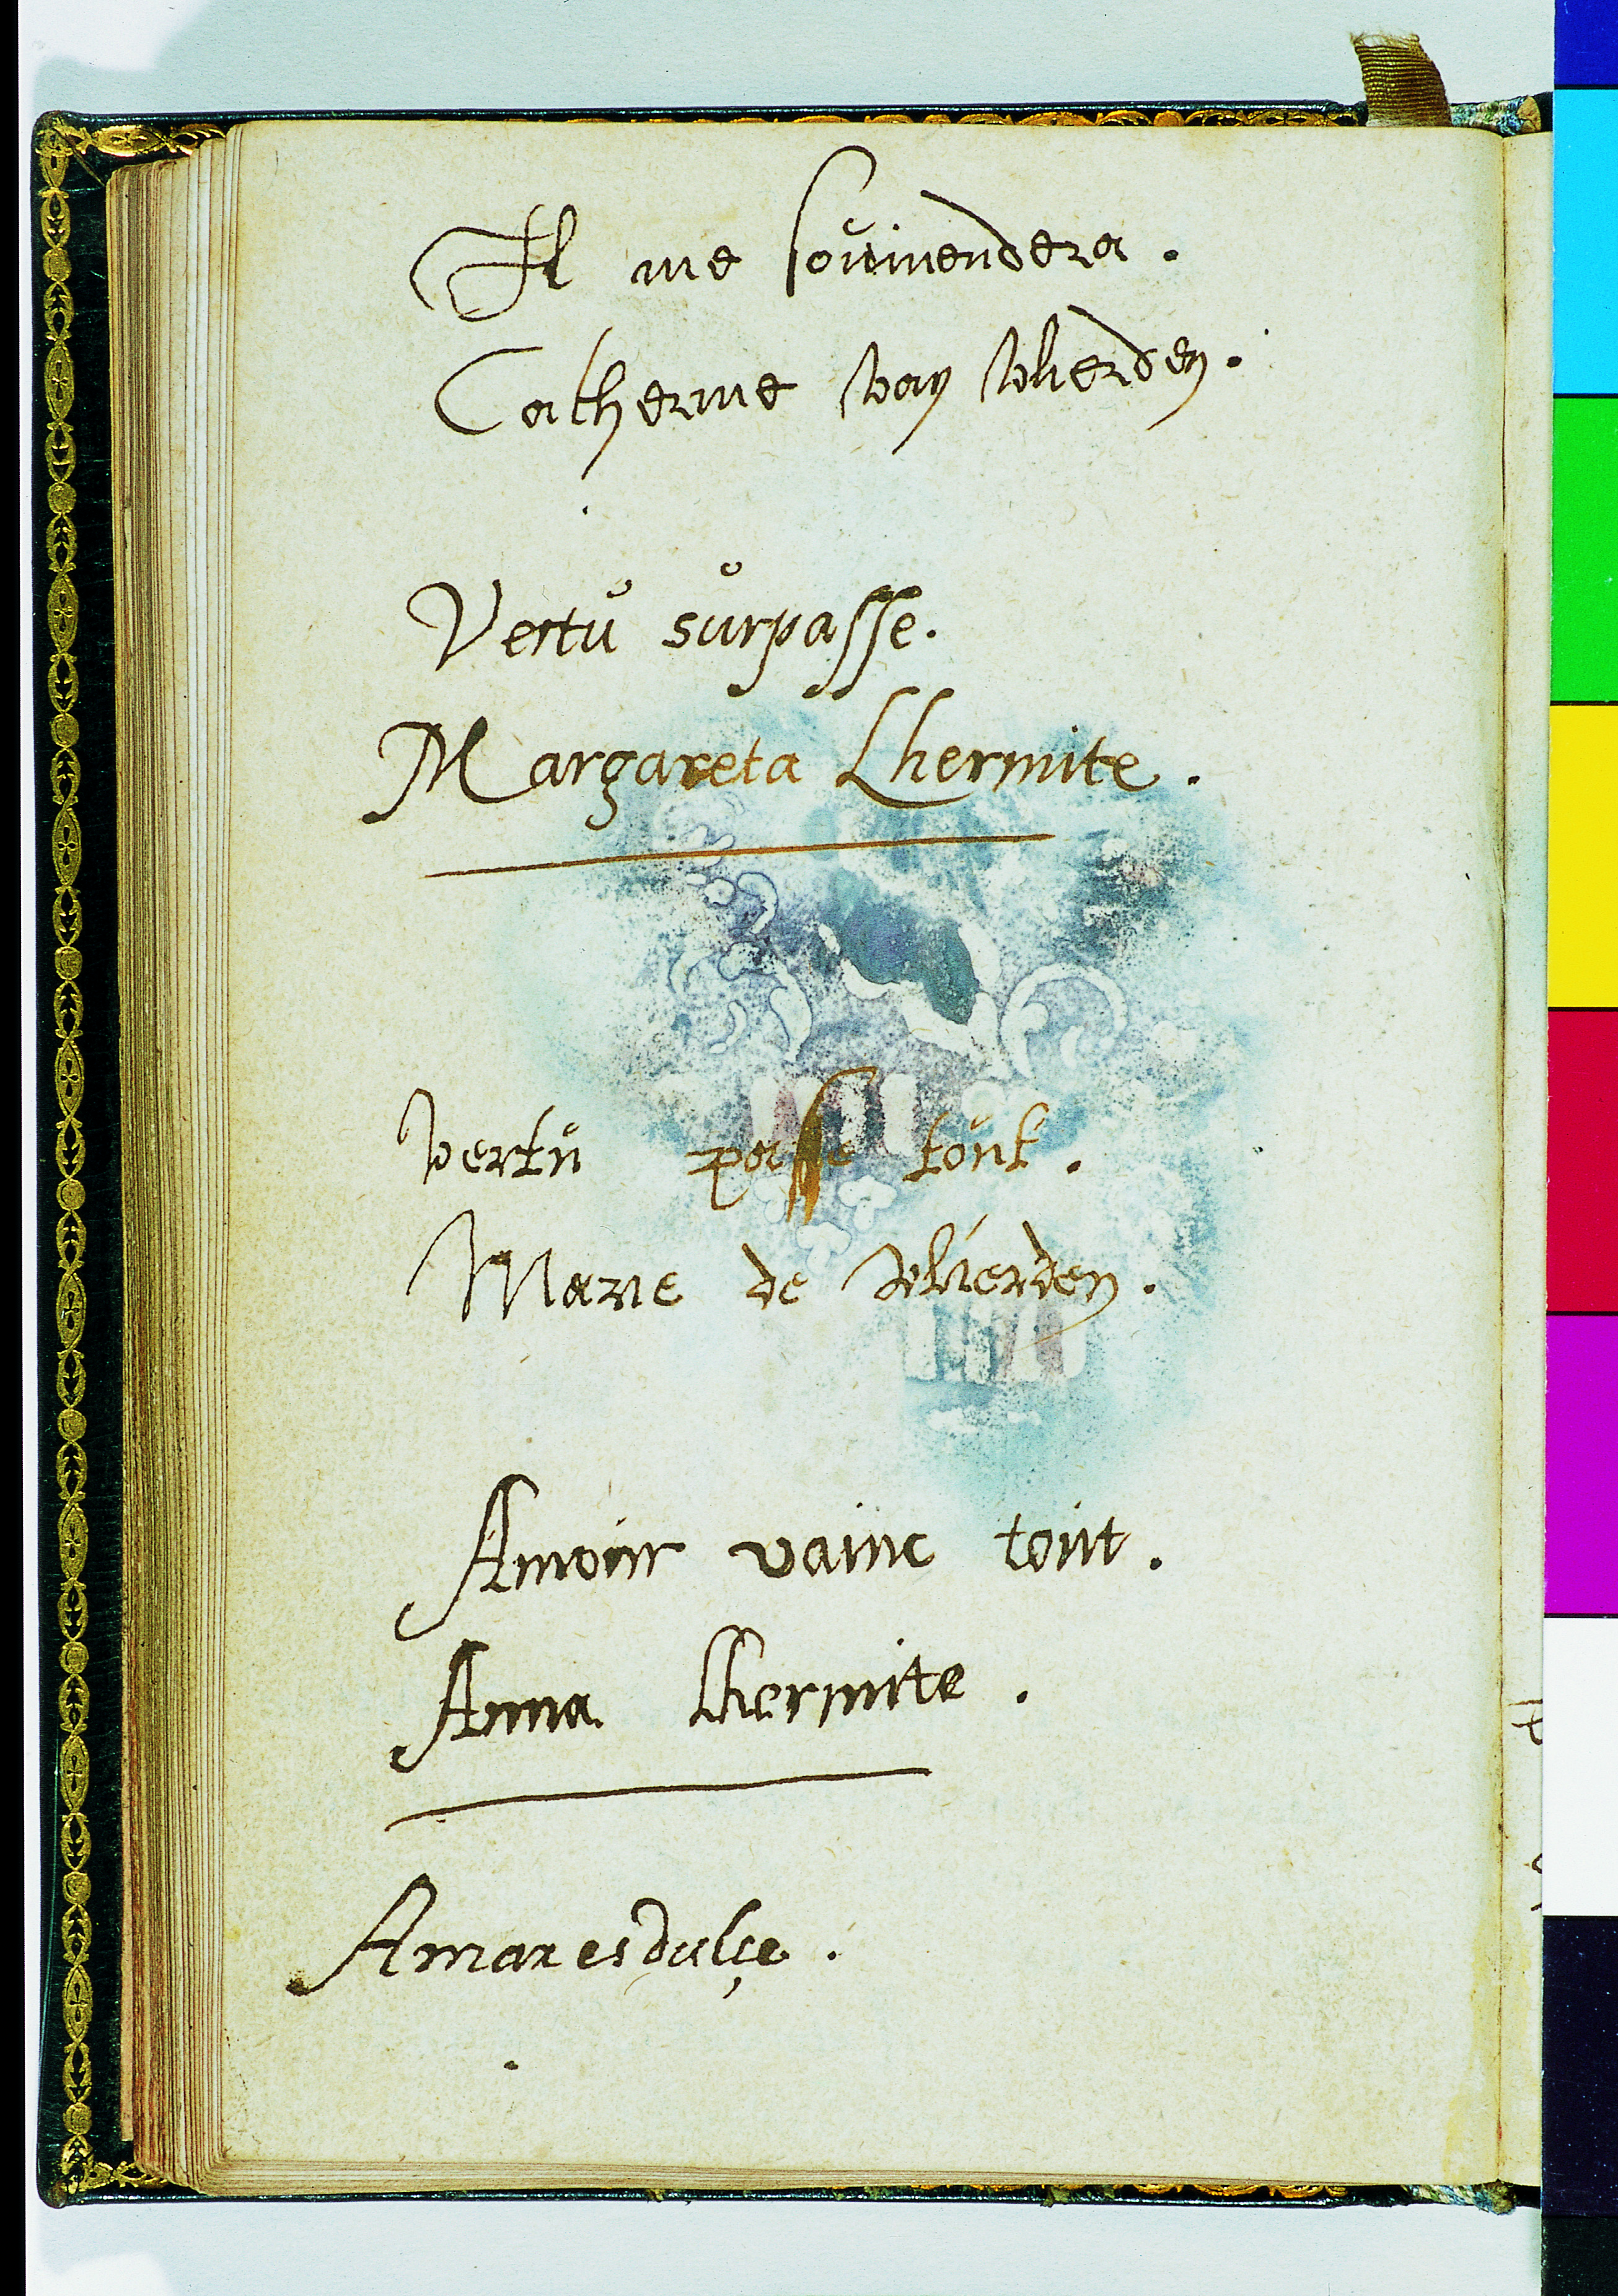 Il me souviendera.
Catherine van Wlierden.
Vertu surpasse.
Margareta Lhermite.
vertu passe tout.
Marie de Wlierden.
Amour vainc tout.
Anna Lhermite.
Amar es dulçe.